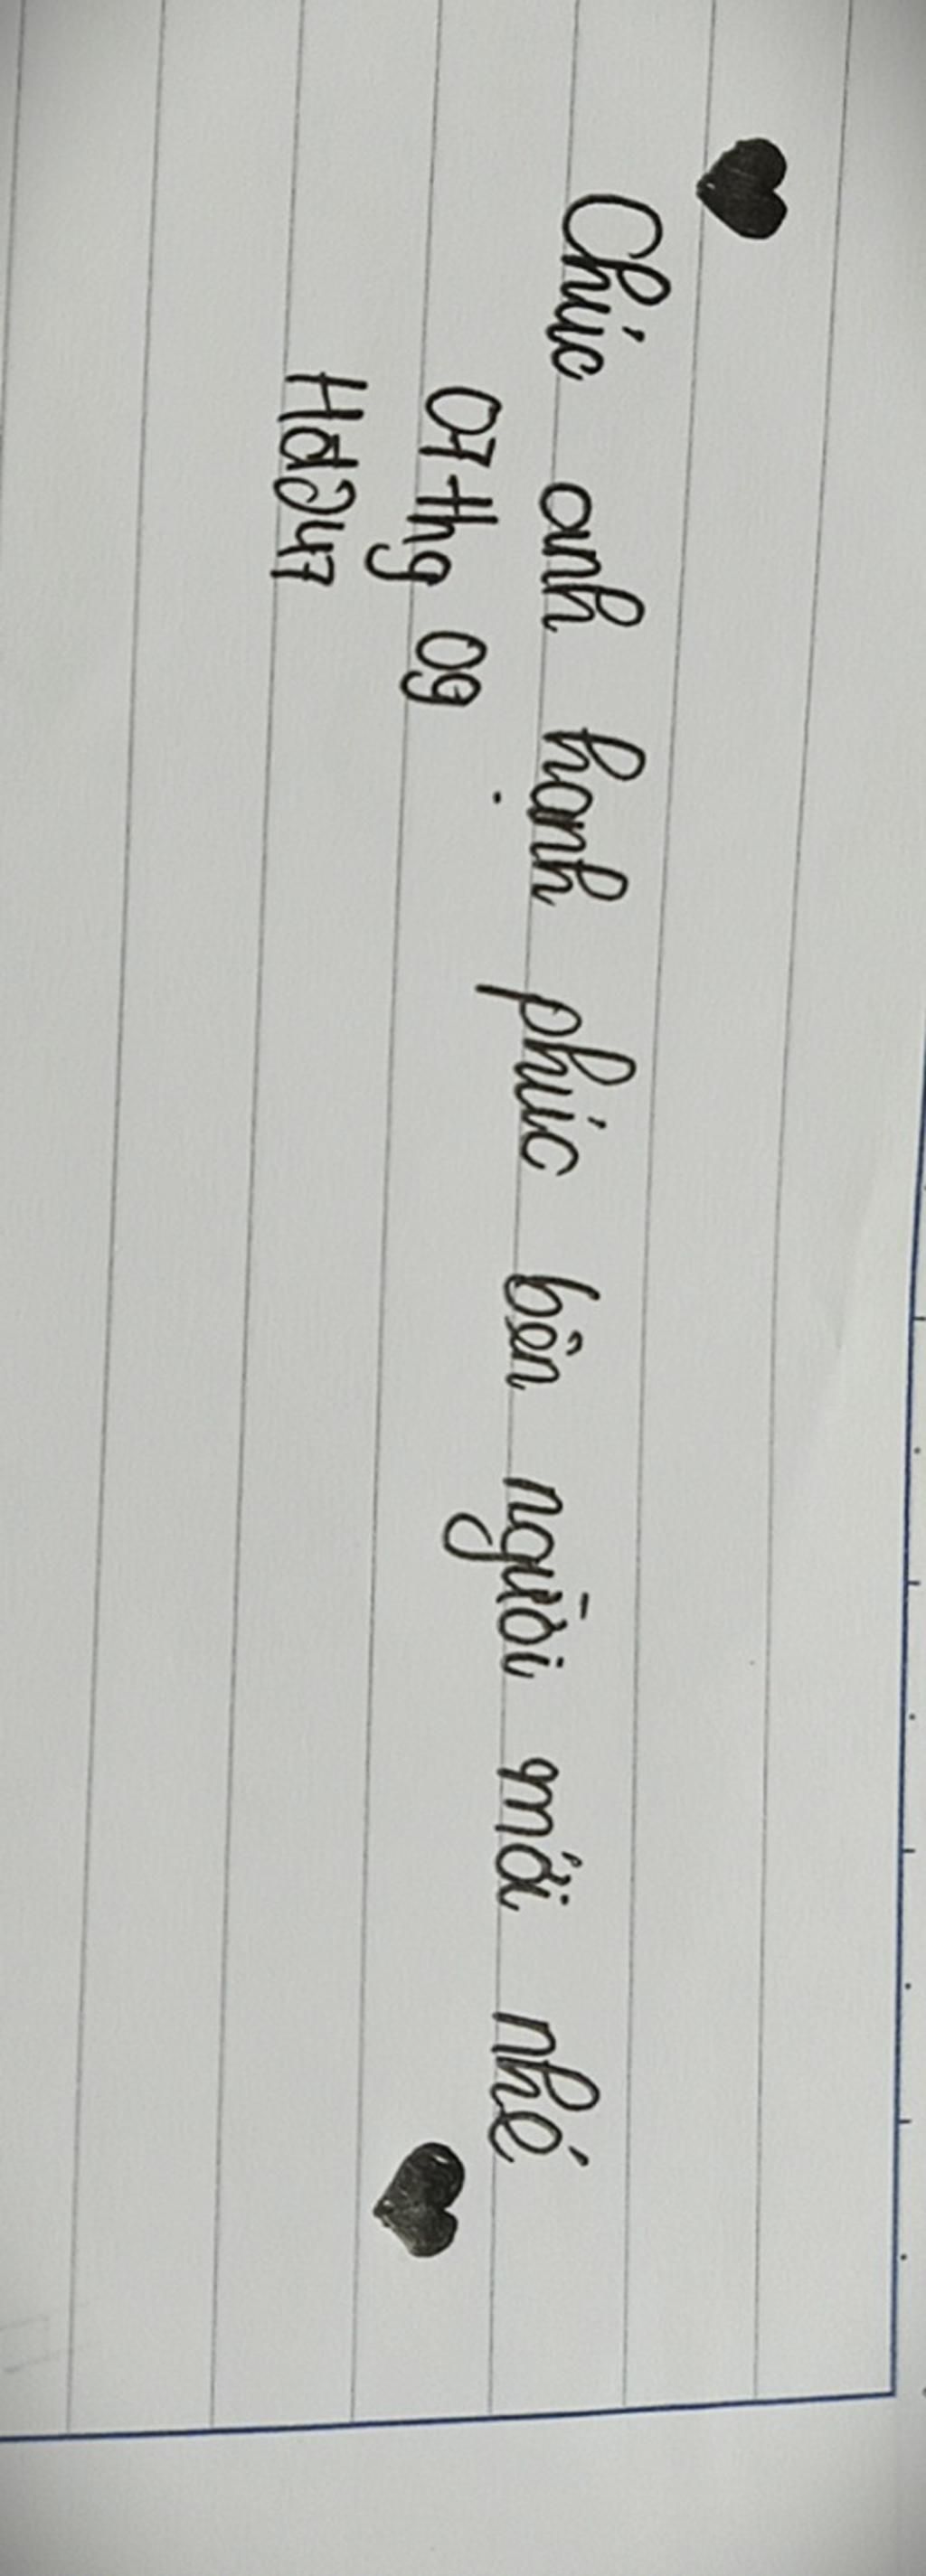 Chúc anh hạnh phúc bên người mới nhé
07 thg 09
Hđ247